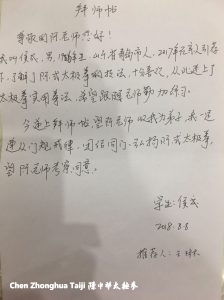 拜师帖
尊敬的陈老师您好！
我叫侯戈，男，山东省青岛市人，2017年友人引荐
了解了陈式太极拳的技法，十分喜欢，从此迷上了
太极拳实用拳法，希望跟随老师勤加练习。
今递上拜师帖望陈老师收我为弟子，我一定
遵从门规戒律，团结同门，弘扬陈式太极拳，
望陈老师考察同意。
学生：侯
2018.3.8
推荐人：
Chen Zhonghua Taiji 陈中华太极拳